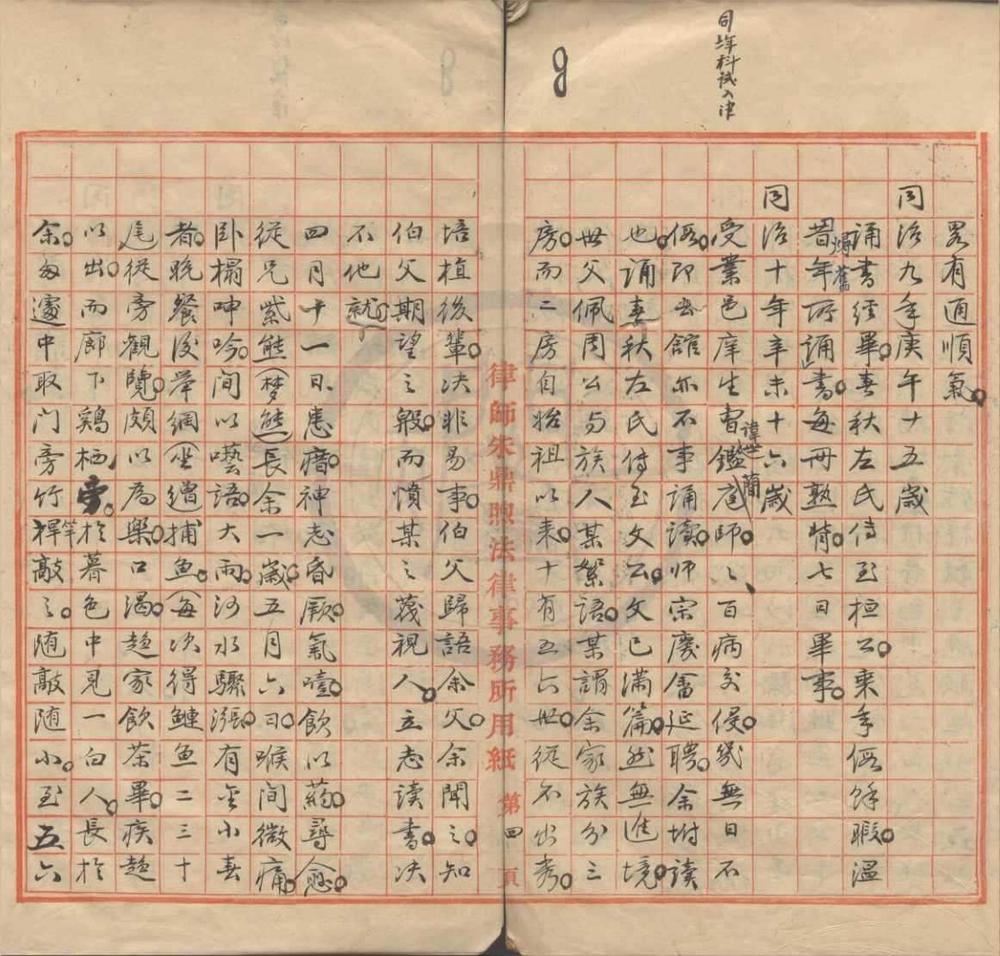 同年科試入津
8
畧有通順氣。
同治九年庚午十五歲
誦書經畢。春秋左氏傳至桓公。乘年假餘暇。溫
昔年所誦書。每毋熟情。七日畢事。
燖舊
同治十年辛未十六歲
受業邑庠生曾鑑庭師。師百病交侵。幾無日不
諱世蘭
假。即在館亦不事誦讀。師宗慶畬延聘。余坿讀
也。誦春秋左氏傳至文公。文已滿篇。然無進境。
世父佩周公與族人某絮語。某謂余家族分三
房。而二房自始祖以來。十有五六世。從不出秀。
律師朱鼎煦法律事務所用紙 第四頁
培植後輩。決非易事。伯父歸語余父。余聞之。知
伯父期望之殷。而憤某之蔑視人。立志讀書。決
不他就。
四月十一日。患痦。神志昏厥。氣噎。飲以藥。尋愈。
從兄紫熊（夢熊）長余一歲。五月六日。喉間微痛。
臥榻呻吟。間以囈語。大雨。河水驟漲。有金小春
者。晚餐後。举網（坐罾）捕魚。（每次得鰱魚二三十
尾）從旁觀覽。頗以為樂。口渴。趨家飲茶畢。疾趨
以出。而廊下鷄栖旁。於暮色中見一白人。長於
余。匆遽中取門旁竹竿敲之。随敲随小。至五六
8